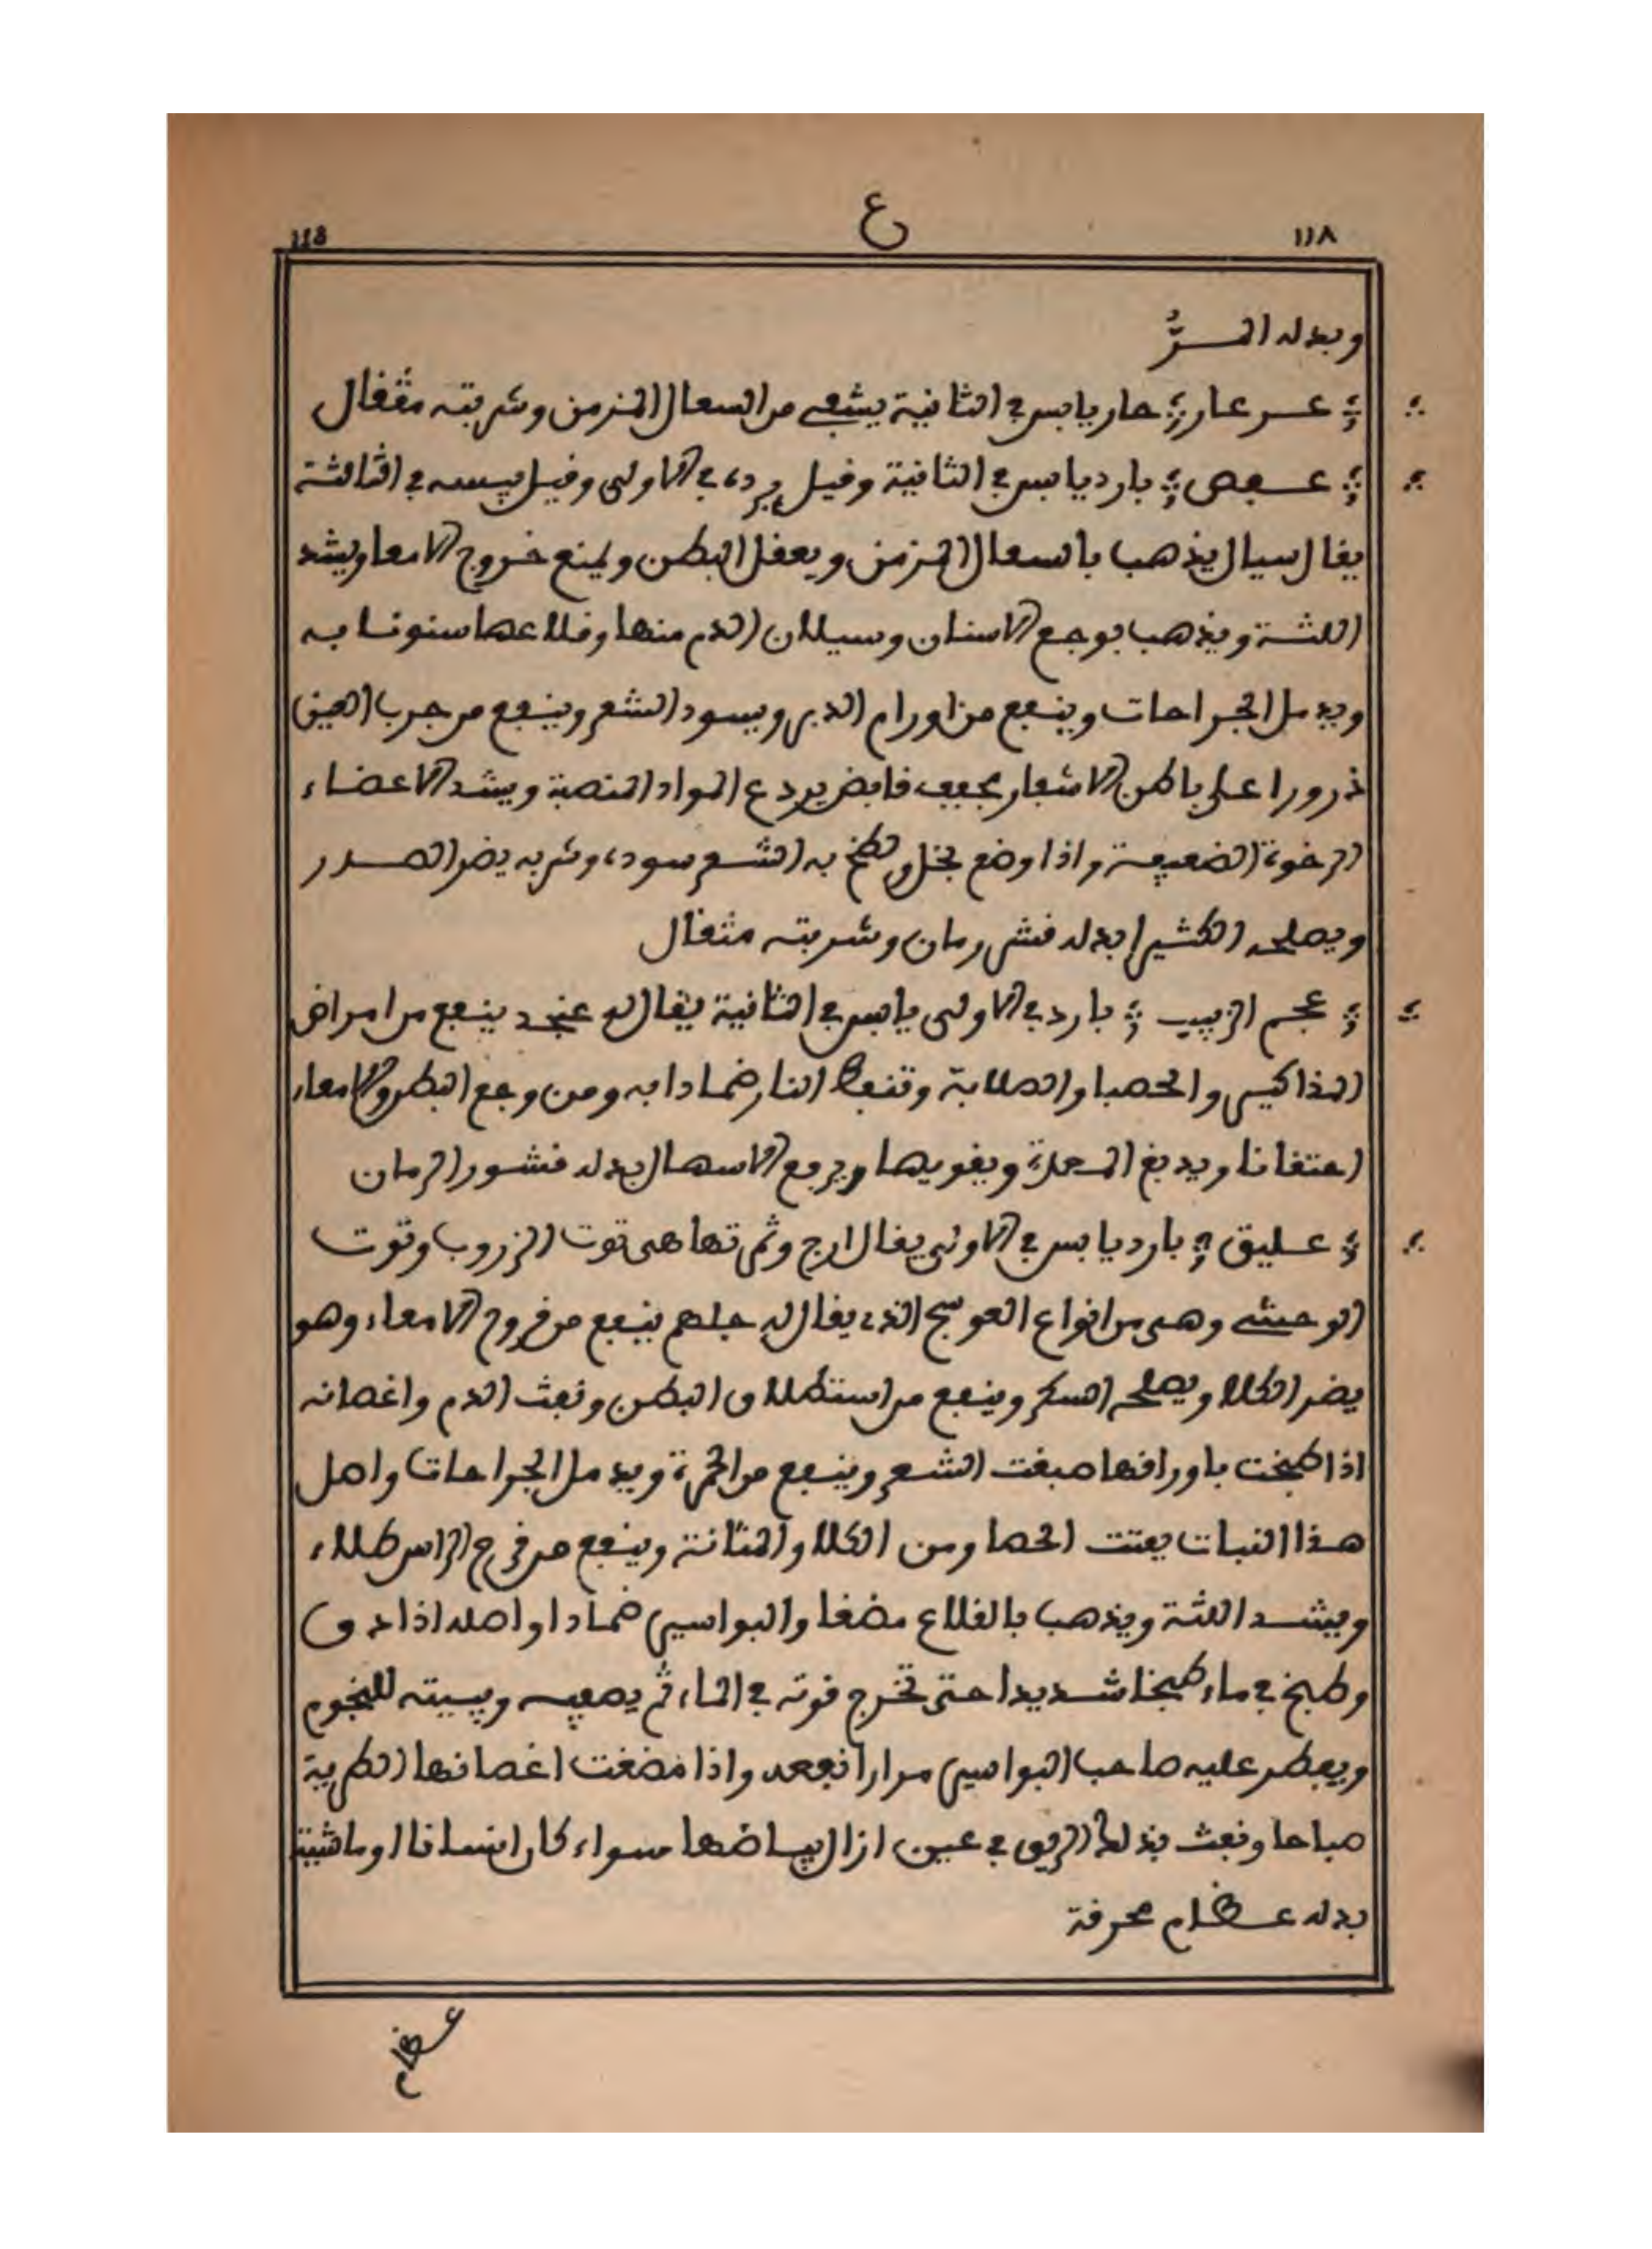 ١١٨ ع 118
وبدله المرُّ
عرعار حار يابس في الثانية يشفي من السعال المزمن وشربته مثقال
عفص بارد يابس في الثانية وقيل برده في الاولى وقيل يبسه في الثالثة
يقال سيال يذهب بالسعال المزمن ويعقل البطن ويمنع خروج الامعا ويشد
اللثة ويذهب بوجع الاسنان وسيلان الدم منها وقلاعها سنونا به
ويدمل الجراحات وينفع من اورام الدبر ويسود الشعر وينفع من جرب العين
ذرورا على باطن الاشفار مجفف قابض يردع المواد المنصبة ويشد الاعضاء
الرخوة الضعيفة واذا وضع بخل ولطخ به الشعر سوده وشربه يضر الصدر
ويصلحه الكثيرا بدله قشر رمان وشربته مثقال
عجم الزبيب بارد في الاولى يابس في الثانية يقال له عنجد ينفع من امراض
المذاكير والحصبا والصلابة وتنفط النار ضمادا به ومن وجع البطن والامعاء
احتقانا ويدبغ المعدة ويقويها ويرجع الاسهال بدله قشور الرمان
عليق بارد يابس في الاولى يقال ارج وثمرتها هى توت الزروب وتوت
الوحشي وهى من انواع العوسج الذي يقال له جلهم ينفع من قروح الامعاء وهو
يضر الكلا ويصلحه السكر وينفع من استطلاق البطن ونفث الدم واغصانه
اذا طبخت باوراقها صبغت الشعر وينفع من الحمرة ويدمل الجراحات واصل
هذا النبات يفتت الحصا ومن الكلا والمثانة وينفع من قرح الراس طلاء
ويشد اللثة ويذهب بالقلاع مضغا والبواسير ضمادا واصله اذا دق
وطبخ في ماء طبخا شديدا حتى تخرج قوته في الماء ثم يصفيه ويبيته للنجوم
ويفطر عليه صاحب البواسير مرارا نفعه واذا مضغت اغصانها الطرية
صباحا ونفث بذلك الريق في عين ازال بياضها سواء كان انسانا او ماشية
بدله عظام محرقة
عظام